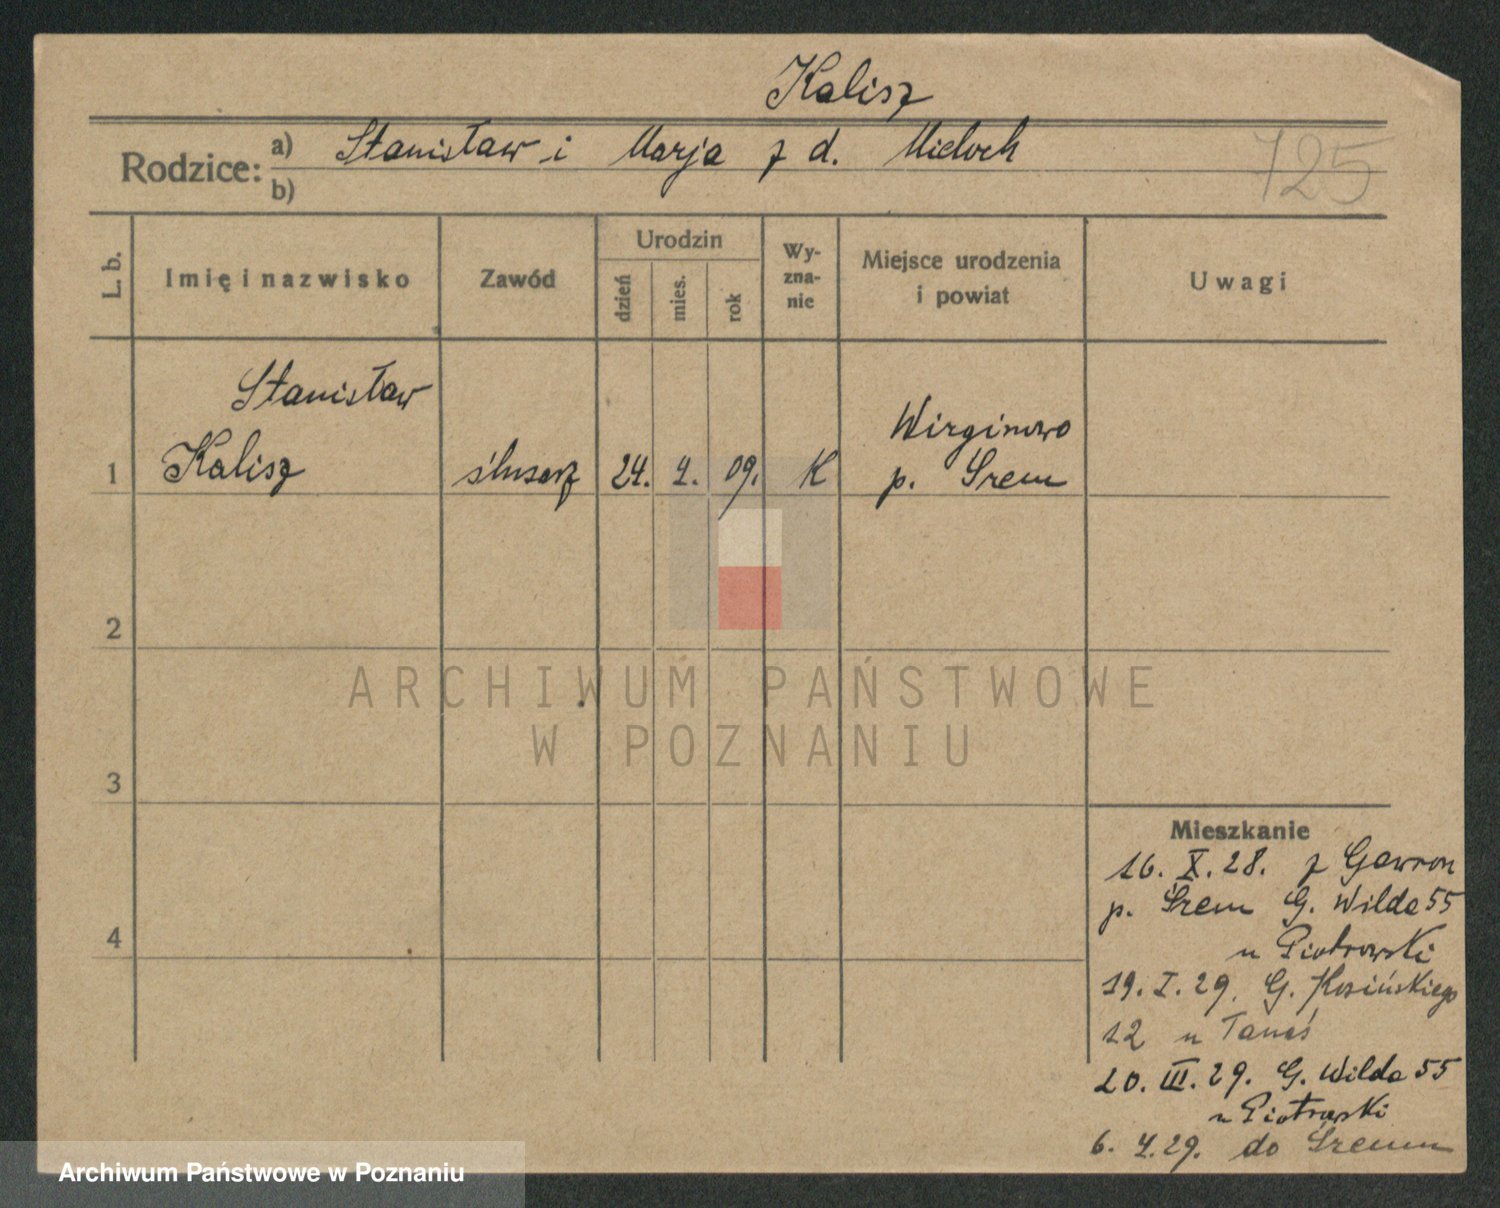 Kalisz
Rodzice: a) Stanisław i Marja z d. Mieloch
b)
725
L. b.
Imię i nazwisko
Zawód
Urodzin
dzień
mies.
rok
Wy-
zna-
nie
Miejsce urodzenia
i powiat
Uwagi
Stanisław
1 Kalisz ślusarz 24. 4. 09. K Wirginowo
p. Śrem
2
3
4
Mieszkanie
16. X. 28. z Gawron
p. Śrem G. Wilda 55
u Piotrowski
19. I. 29. G. Kosińskiego
12 u Tanaś
20. III. 29. G. Wilda 55
u Piotrowski
6. 4. 29. do Śremu
ARCHIWUM PAŃSTWOWE
W POZNANIU
Archiwum Państwowe w Poznaniu